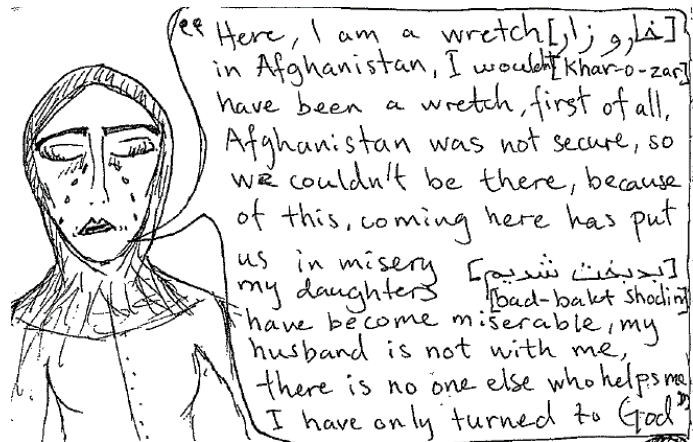 "Here, I am a wretch [خار و زار]
in Afghanistan, I wouldn't [khar-o-zar]
have been a wretch, first of all,
Afghanistan was not secure, so
we couldn't be there, because
of this, coming here has put
us in misery [بدبخت شدیم]
my daughters [bad-bakt shodim]
have become miserable, my
husband is not with me,
there is no one else who helps me
I have only turned to God"